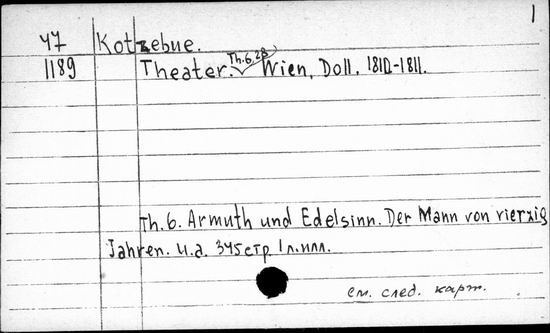 1
47 Kotzebue.
1189 Theater. Th. 6, 28 Wien, Doll, 1810-1811.
Th. 6. Armuth und Edelsinn. Der Mann von vierzig
Jahren. u.a. 345 стр 1 л. илл.
см. след. карт.